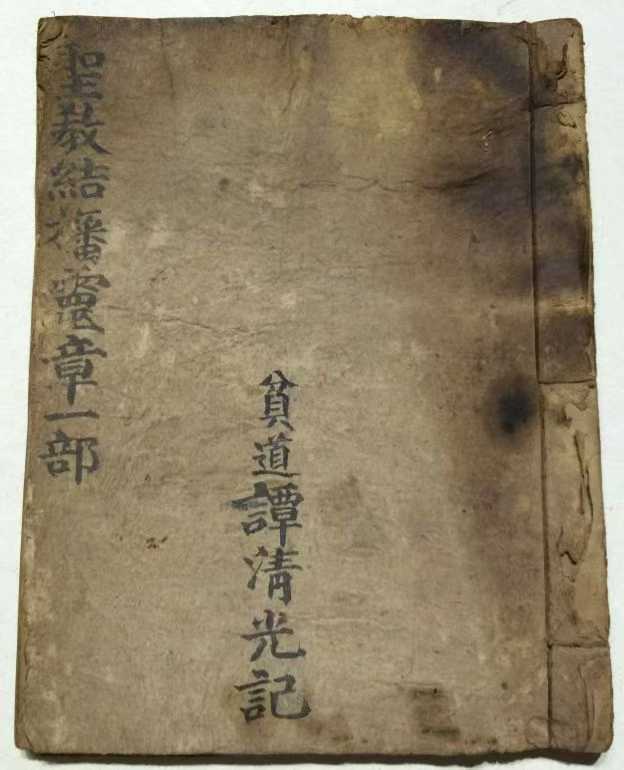 聖教結旛靈章一部
貧道譚清光記